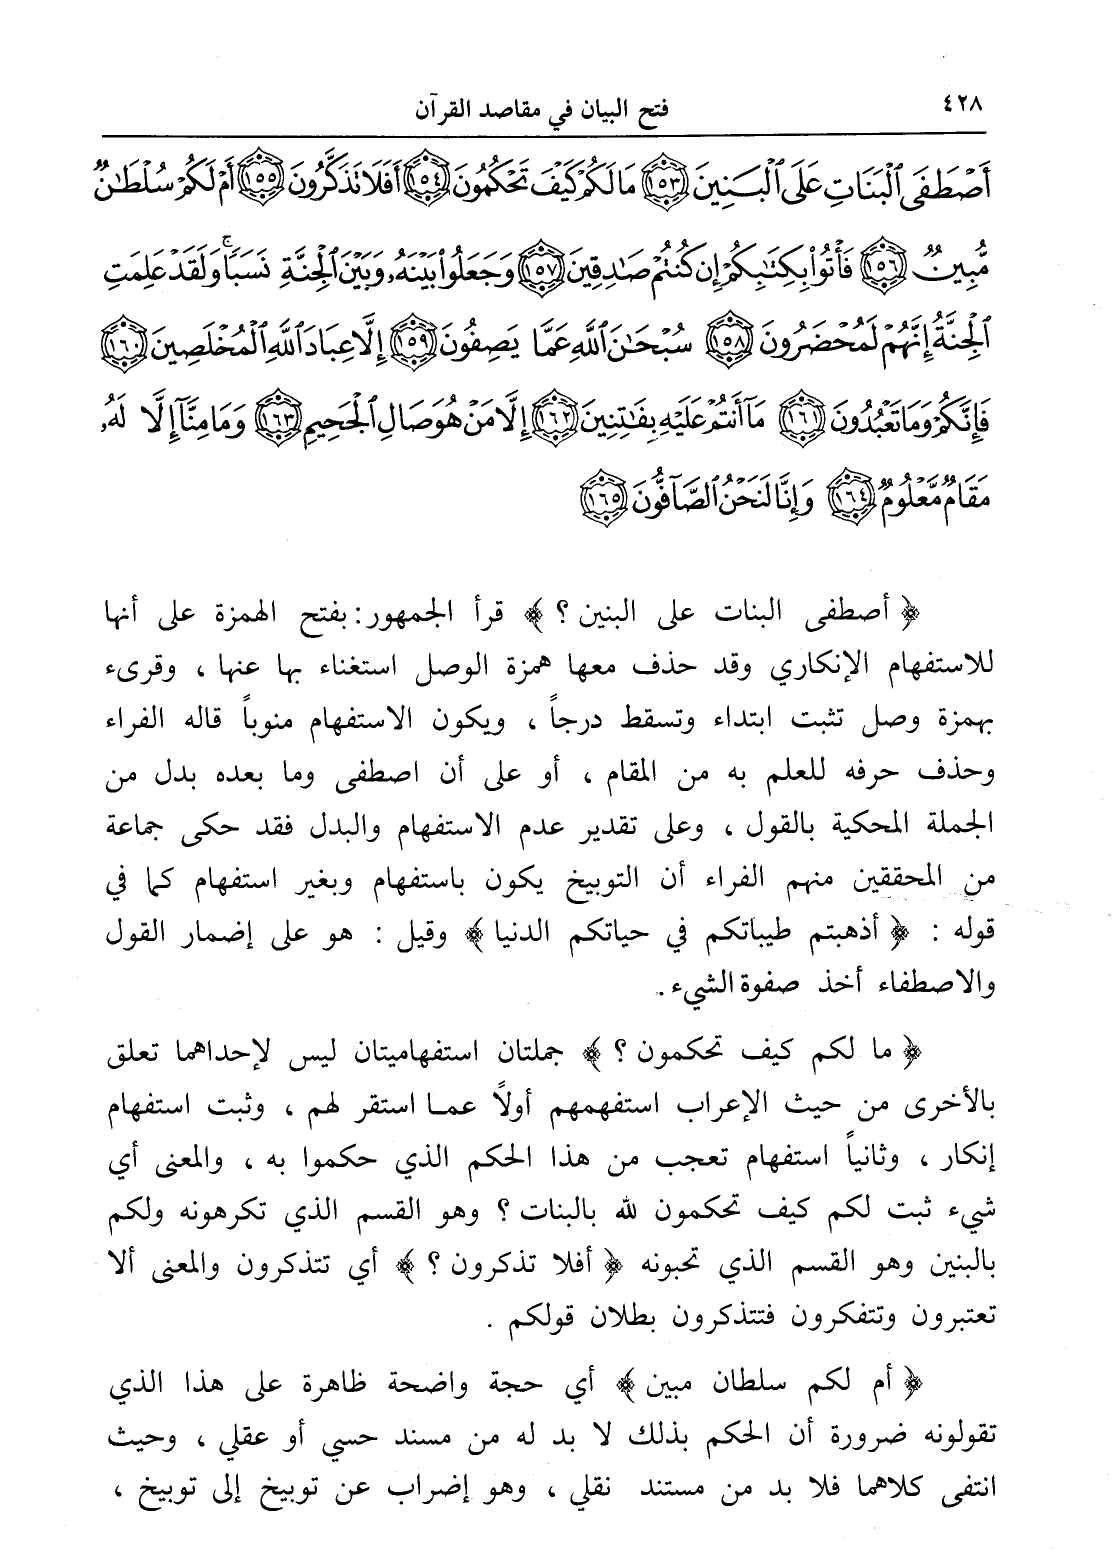 ٤٢٨
فتح البيان في مقاصد القرآن
أَصْطَفَى ٱلْبَنَاتِ عَلَى ٱلْبَنِينَ ١٥٣ مَا لَكُمْ كَيْفَ تَحْكُمُونَ ١٥٤ أَفَلَا تَذَكَّرُونَ ١٥٥ أَمْ لَكُمْ سُلْطَٰنٌ
مُّبِينٌ ١٥٦ فَأْتُوا۟ بِكِتَٰبِكُمْ إِن كُنتُمْ صَٰدِقِينَ ١٥٧ وَجَعَلُوا۟ بَيْنَهُۥ وَبَيْنَ ٱلْجِنَّةِ نَسَبًا ۚ وَلَقَدْ عَلِمَتِ
ٱلْجِنَّةُ إِنَّهُمْ لَمُحْضَرُونَ ١٥٨ سُبْحَٰنَ ٱللَّهِ عَمَّا يَصِفُونَ ١٥٩ إِلَّا عِبَادَ ٱللَّهِ ٱلْمُخْلَصِينَ ١٦٠
فَإِنَّكُمْ وَمَا تَعْبُدُونَ ١٦١ مَآ أَنتُمْ عَلَيْهِ بِفَٰتِنِينَ ١٦٢ إِلَّا مَنْ هُوَ صَالِ ٱلْجَحِيمِ ١٦٣ وَمَا مِنَّآ إِلَّا لَهُۥ
مَقَامٌ مَّعْلُومٌ ١٦٤ وَإِنَّا لَنَحْنُ ٱلصَّآفُّونَ ١٦٥
﴿ أصطفى البنات على البنين ؟ ﴾ قرأ الجمهور : بفتح الهمزة على أنها
للاستفهام الإنكاري وقد حذف معها همزة الوصل استغناء بها عنها ، وقرىء
بهمزة وصل تثبت ابتداء وتسقط درجاً ، ويكون الاستفهام منوباً قاله الفراء
وحذف حرفه للعلم به من المقام ، أو على أن اصطفى وما بعده بدل من
الجملة المحكية بالقول ، وعلى تقدير عدم الاستفهام والبدل فقد حكى جماعة
من المحققين منهم الفراء أن التوبيخ يكون باستفهام وبغير استفهام كما في
قوله : ﴿ أذهبتم طيباتكم في حياتكم الدنيا ﴾ وقيل : هو على إضمار القول
والاصطفاء أخذ صفوة الشيء .
﴿ ما لكم كيف تحكمون ؟ ﴾ جملتان استفهاميتان ليس لإحداهما تعلق
بالأخرى من حيث الإعراب استفهمهم أولاً عما استقر لهم ، وثبت استفهام
إنكار ، وثانياً استفهام تعجب من هذا الحكم الذي حكموا به ، والمعنى أي
شيء ثبت لكم كيف تحكمون لله بالبنات ؟ وهو القسم الذي تكرهونه ولكم
بالبنين وهو القسم الذي تحبونه ﴿ أفلا تذكرون ؟ ﴾ أي تتذكرون والمعنى ألا
تعتبرون وتتفكرون فتتذكرون بطلان قولكم .
﴿ أم لكم سلطان مبين ﴾ أي حجة واضحة ظاهرة على هذا الذي
تقولونه ضرورة أن الحكم بذلك لا بد له من مسند حسي أو عقلي ، وحيث
انتفى كلاهما فلا بد من مستند نقلي ، وهو إضراب عن توبيخ إلى توبيخ ،